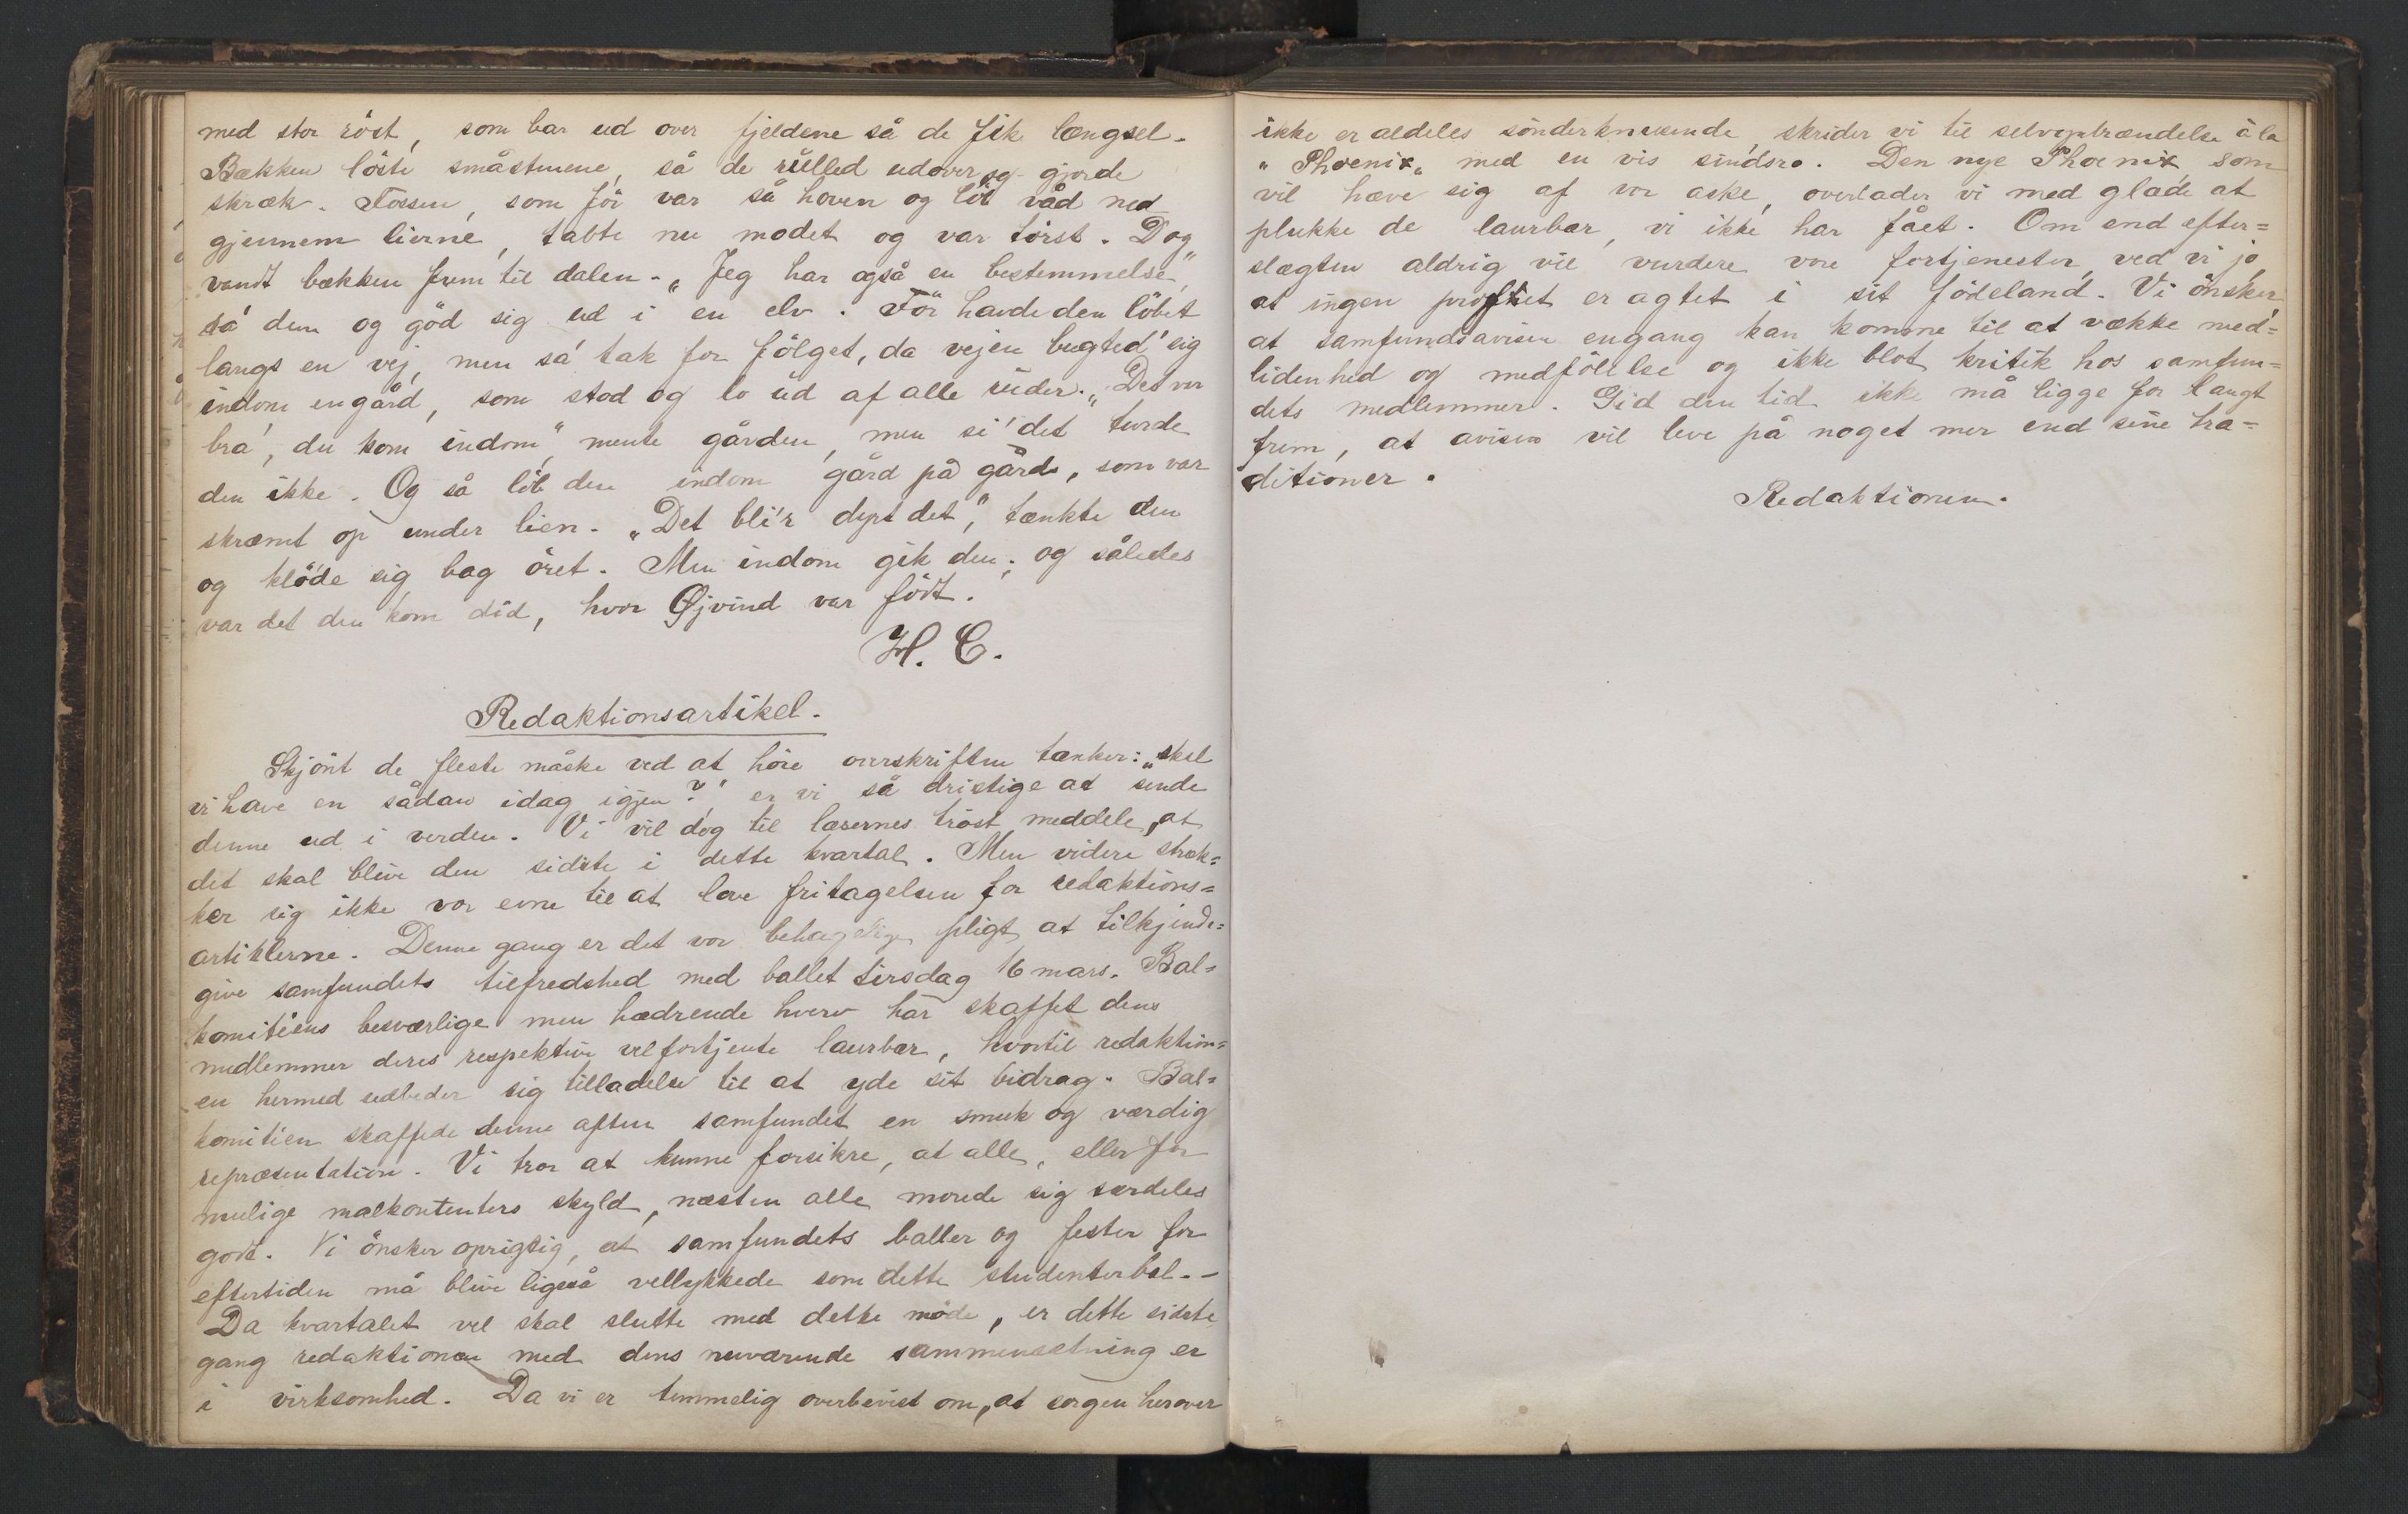 med stor röst, som bar ud over fjeldene så de fik længsel.
Bækken löste småstenene, så de rulled udover og gjorde
skræk. Fossen, som för var så hoven og löb våd ned
gjennem lierne, tabte nu modet og var törst. Dog
vandt bækken frem til dalen. „Jeg har også en bestemmelse,"
sa' den og göd sig ud i en elv. För havde den löbet
langs en vej, men så tak for fölget, da vejen bugted sig
indom en gård, som stod og lo ud af alle ruder. „Det var
bra', du kom indom," mente gården, men si' det turde
den ikke. Og så löb den indom gård på gård, som var
skræmt op under lien. „Det bli'r dyrt det," tænkte den
og klöde sig bag öret. Men indom gik den; og således
var det den kom did, hvor Øjvind var födt.
H. C.
Redaktionsartikel.
Skjönt de fleste måske ved at höre overskriften tænker: „skal
vi have en sådan idag igjen?" er vi så dristige at sende
denne ud i verden. Vi vil dog til læsernes tröst meddele, at
det skal blive den sidste i dette kvartal. Men videre stræk=
ker sig ikke vor evne til at love fritagelsen for redaktions=
artiklerne. Denne gang er det vor behagelige pligt at tilkjende=
give samfundets tilfredshed med ballet tirsdag 16 mars. Bal=
komitéens besværlige men hædrende hverv har skaffet dens
medlemmer deres respektive velfortjente laurbær, hvortil redaktion=
en hermed udbeder sig tilladelse til at yde sit bidrag. Bal=
komitéen skaffede denne aften samfundet en smuk og værdig
repræsentation. Vi tror at kunne forsikre, at alle, eller for
mulige malkontenters skyld, næsten alle morede sig særdeles
godt. Vi önsker oprigtig, at samfundets baller og fester for
eftertiden må blive ligeså vellykkede som dette studenterbal. -
Da kvartalet vel skal slutte med dette möde, er dette sidste
gang redaktionen med dens nuværende sammensætning er
i virksomhed. Da vi er temmelig overbevist om, at sorgen herover
ikke er aldeles sönderknusende, skrider vi til selvopbrændelse à la
„Phoenix„ med en vis sindsro. Den nye Phoenix som
vil hæve sig af vor aske, overlader vi med glæde at
plukke de laurbær, vi ikke har fået. Om end efter=
slægten aldrig vil vurdere vore fortjenester, ved vi jo,
at ingen profet er agtet i sit födeland. Vi önsker,
at samfundsavisen engang kan komme til at vække med=
lidenhed og medfölelse og ikke blot kritik hos samfun=
dets medlemmer. Gid den tid ikke må ligge for langt
frem, at avisen vil leve på noget mer end sine tra=
ditioner.
Redaktionen.